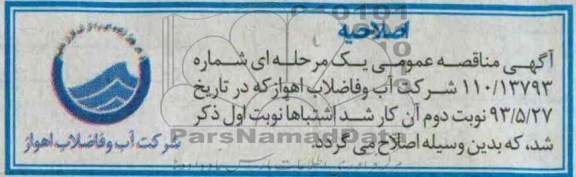 اصلاحیه
آگهی مناقصه عمومی یک مرحله ای شماره
۱۱۰/۱۳۷۹۳ شرکت آب وفاضلاب اهواز که در تاریخ
۹۳/۵/۲۷ نوبت دوم آن کار شد اشتباها نوبت اول ذکر
شد، که بدین وسیله اصلاح می گردد.
شرکت آب وفاضلاب اهواز
ParsNamadData